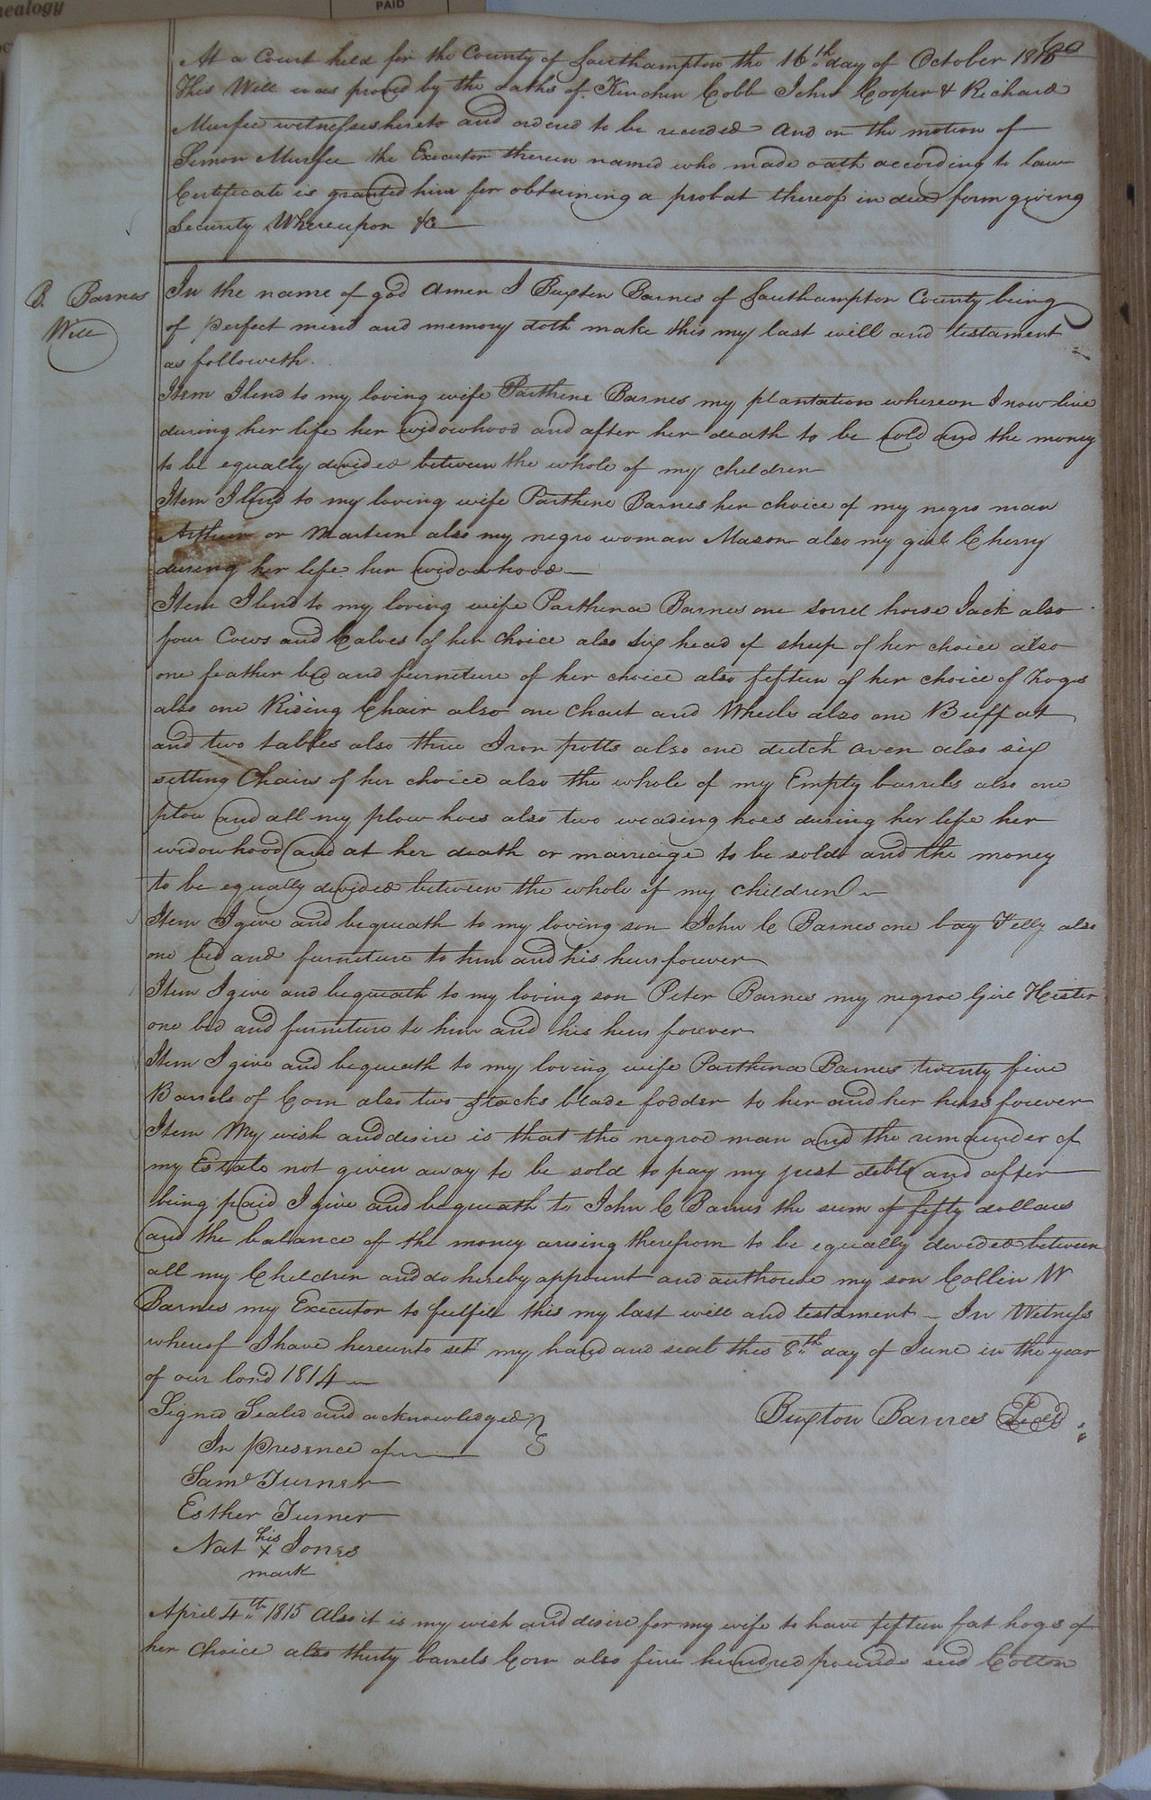 nealogy
PAID
60
At a Court held for the County of Southampton the 16th day of October 1815
This Will was proved by the oaths of Kinchen Cobb John Cooper & Richard
Murfee witnesses hereto and ordered to be recorded And on the motion of
Simon Murfee the Executor therein named who made oath according to law
Certificate is granted him for obtaining a probat thereof in due form giving
Security Whereupon &c
B. Barnes
Will
In the name of god Amen I Buxton Barnes of Southampton County being
of perfect mind and memory doth make this my last will and testament
as followeth.
Item I lend to my loving wife Parthene Barnes my plantation whereon I now live
during her life her widowhood and after her death to be sold and the money
to be equally devided between the whole of my children
Item I lend to my loving wife Parthene Barnes her choice of my negro man
Arthur or Marteen also my negro woman Mason also my girl Cherry
during her life her widowhood
Item I lend to my loving wife Parthena Barnes one sorrel horse Jack also
four Cows and Calves of her choice also six head of sheep of her choice also
one feather bed and furniture of her choice also fifteen of her choice of hogs
also one Riding Chair also one Chart and Wheels also one Buffat
and two tables also three Iron potts also one dutch oven also six
setting Chairs of her choice also the whole of my Empty barrels also one
plow and all my plow hoes also two weading hoes during her life her
widowhood and at her death or marriage to be sold and the money
to be equally devided between the whole of my children
Item I give and bequeath to my loving son John C Barnes one bay Filly also
one bed and furniture to him and his heirs forever
Item I give and bequeath to my loving son Peter Barnes my negroe Girl Hester
one bed and furniture to him and his heirs forever
Item I give and bequeath to my loving wife Parthena Barnes twenty five
Barrels of Corn also two stacks blade fodder to her and her heirs forever
Item My wish and desire is that the negroe man and the remainder of
my Estate not given away to be sold to pay my just debts and after
being paid I give and bequeath to John C Barnes the sum of fifty dollars
and the balance of the money arising therefrom to be equally devided between
all my Children and do hereby appoint and authorise my son Collin W
Barnes my Executor to fulfil this my last will and testament - In Witness
whereof I have hereunto set my hand and seal this 8th day of June in the year
of our lord 1814
Signed Sealed and acknowledged
Buxton Barnes Seal
In presence of
Saml Turner
Esther Turner
Nat his x Jones
mark
April 4th 1815 Also it is my wish and desire for my wife to have fifteen fat hogs of
her choice also thirty barrels Corn also five hundred pounds seed Cotton